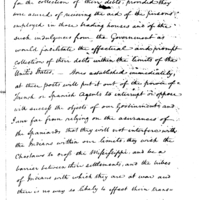 for the collection of their debts, provided they
are assured of receiving the aid of the persons
employed in these trading houses and of the
such indulgences from the Government as
would facilitate the effectual and prompt
collection of their debts within the limits of the
United States. — Once established immediately
at these posts will put it out of the power of a
French or Spanish agents to interrupt or oppose
with success the objects of our Government and
I am far from relying on the assurances of
the Spaniards that they will not interfere with
the Indians within our limits, they wish the
Choctaws to occupy the Mississippi and be a
barrier between their settlements and the tribes
of Indians with which they are at war and
there is no way so likely to effect their